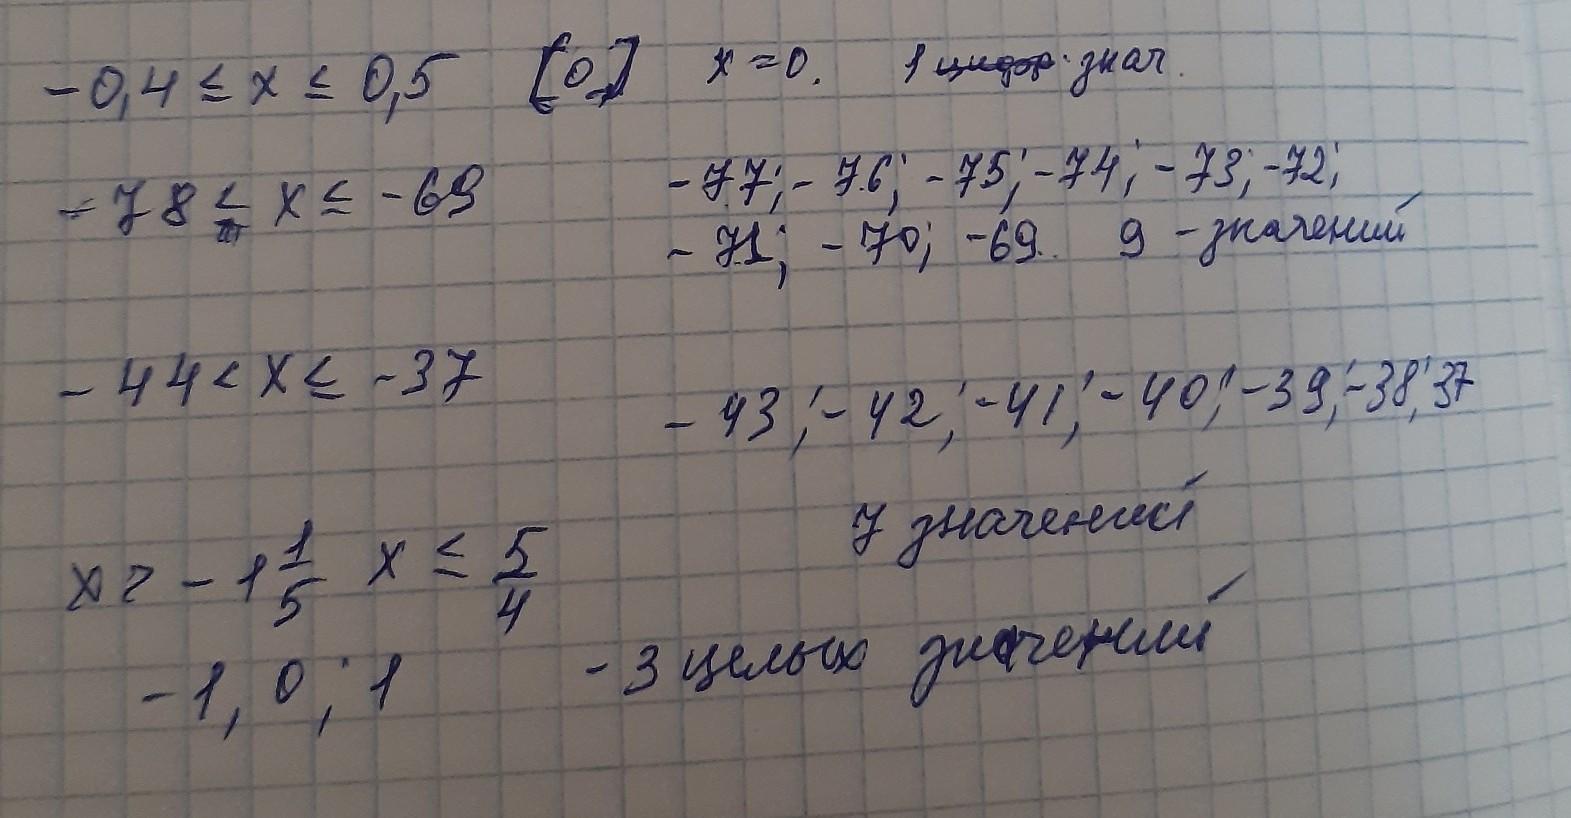 -0,4 ≤ x ≤ 0,5 [0] x = 0. 1 знач.
-78 ≤ x ≤ -69 -77; -76; -75; -74; -73; -72;
-71; -70; -69. 9 - значений
-44 < x ≤ -37 -43; -42; -41; -40; -39; -38; 37
7 значений
x ≥ -1 1/5 x ≤ 5/4
-1, 0; 1 - 3 целых значений